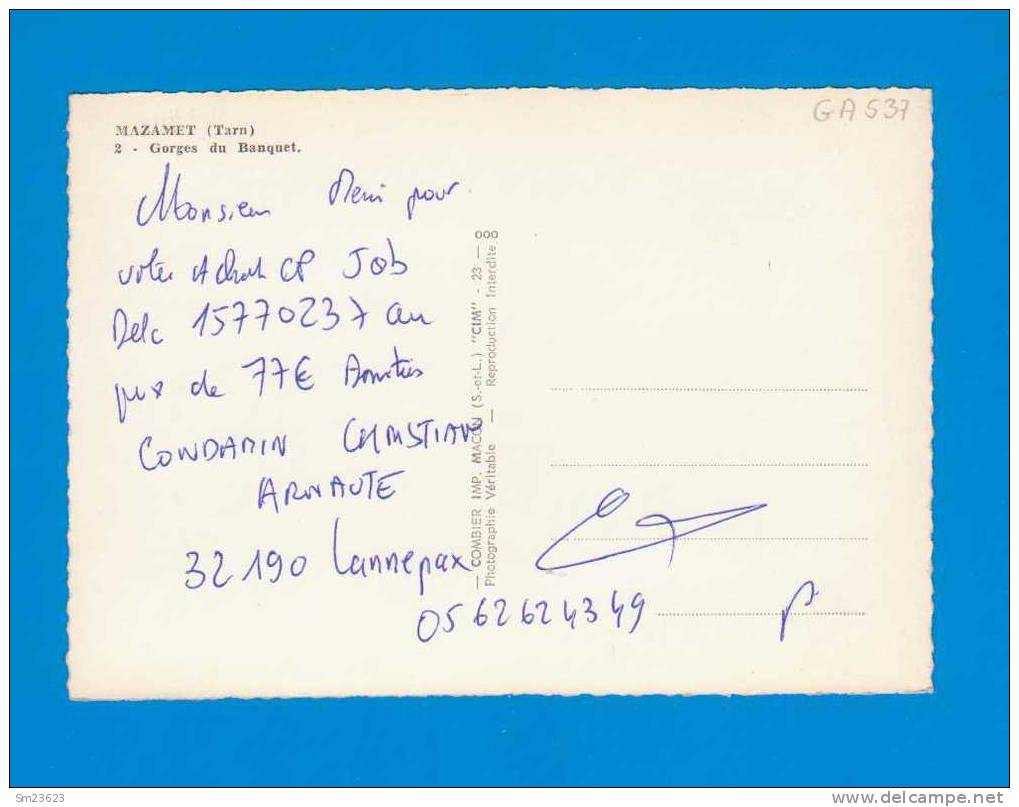 GA537
MAZAMET (Tarn)
2 - Gorges du Banquet.
Monsieur Merci pour
votre Achat CP Job
Delc 15770237 au
prix de 77€ Amitiés
CONDAMIN CHRISTIAN
ARNAUTE
32190 Lannepax
05 62 62 43 49
— COMBIER IMP. MACON (S.-et-L.) "CIM" - 23 — 000
Photographie Véritable — Reproduction Interdite
Sm23623
delcampe.net